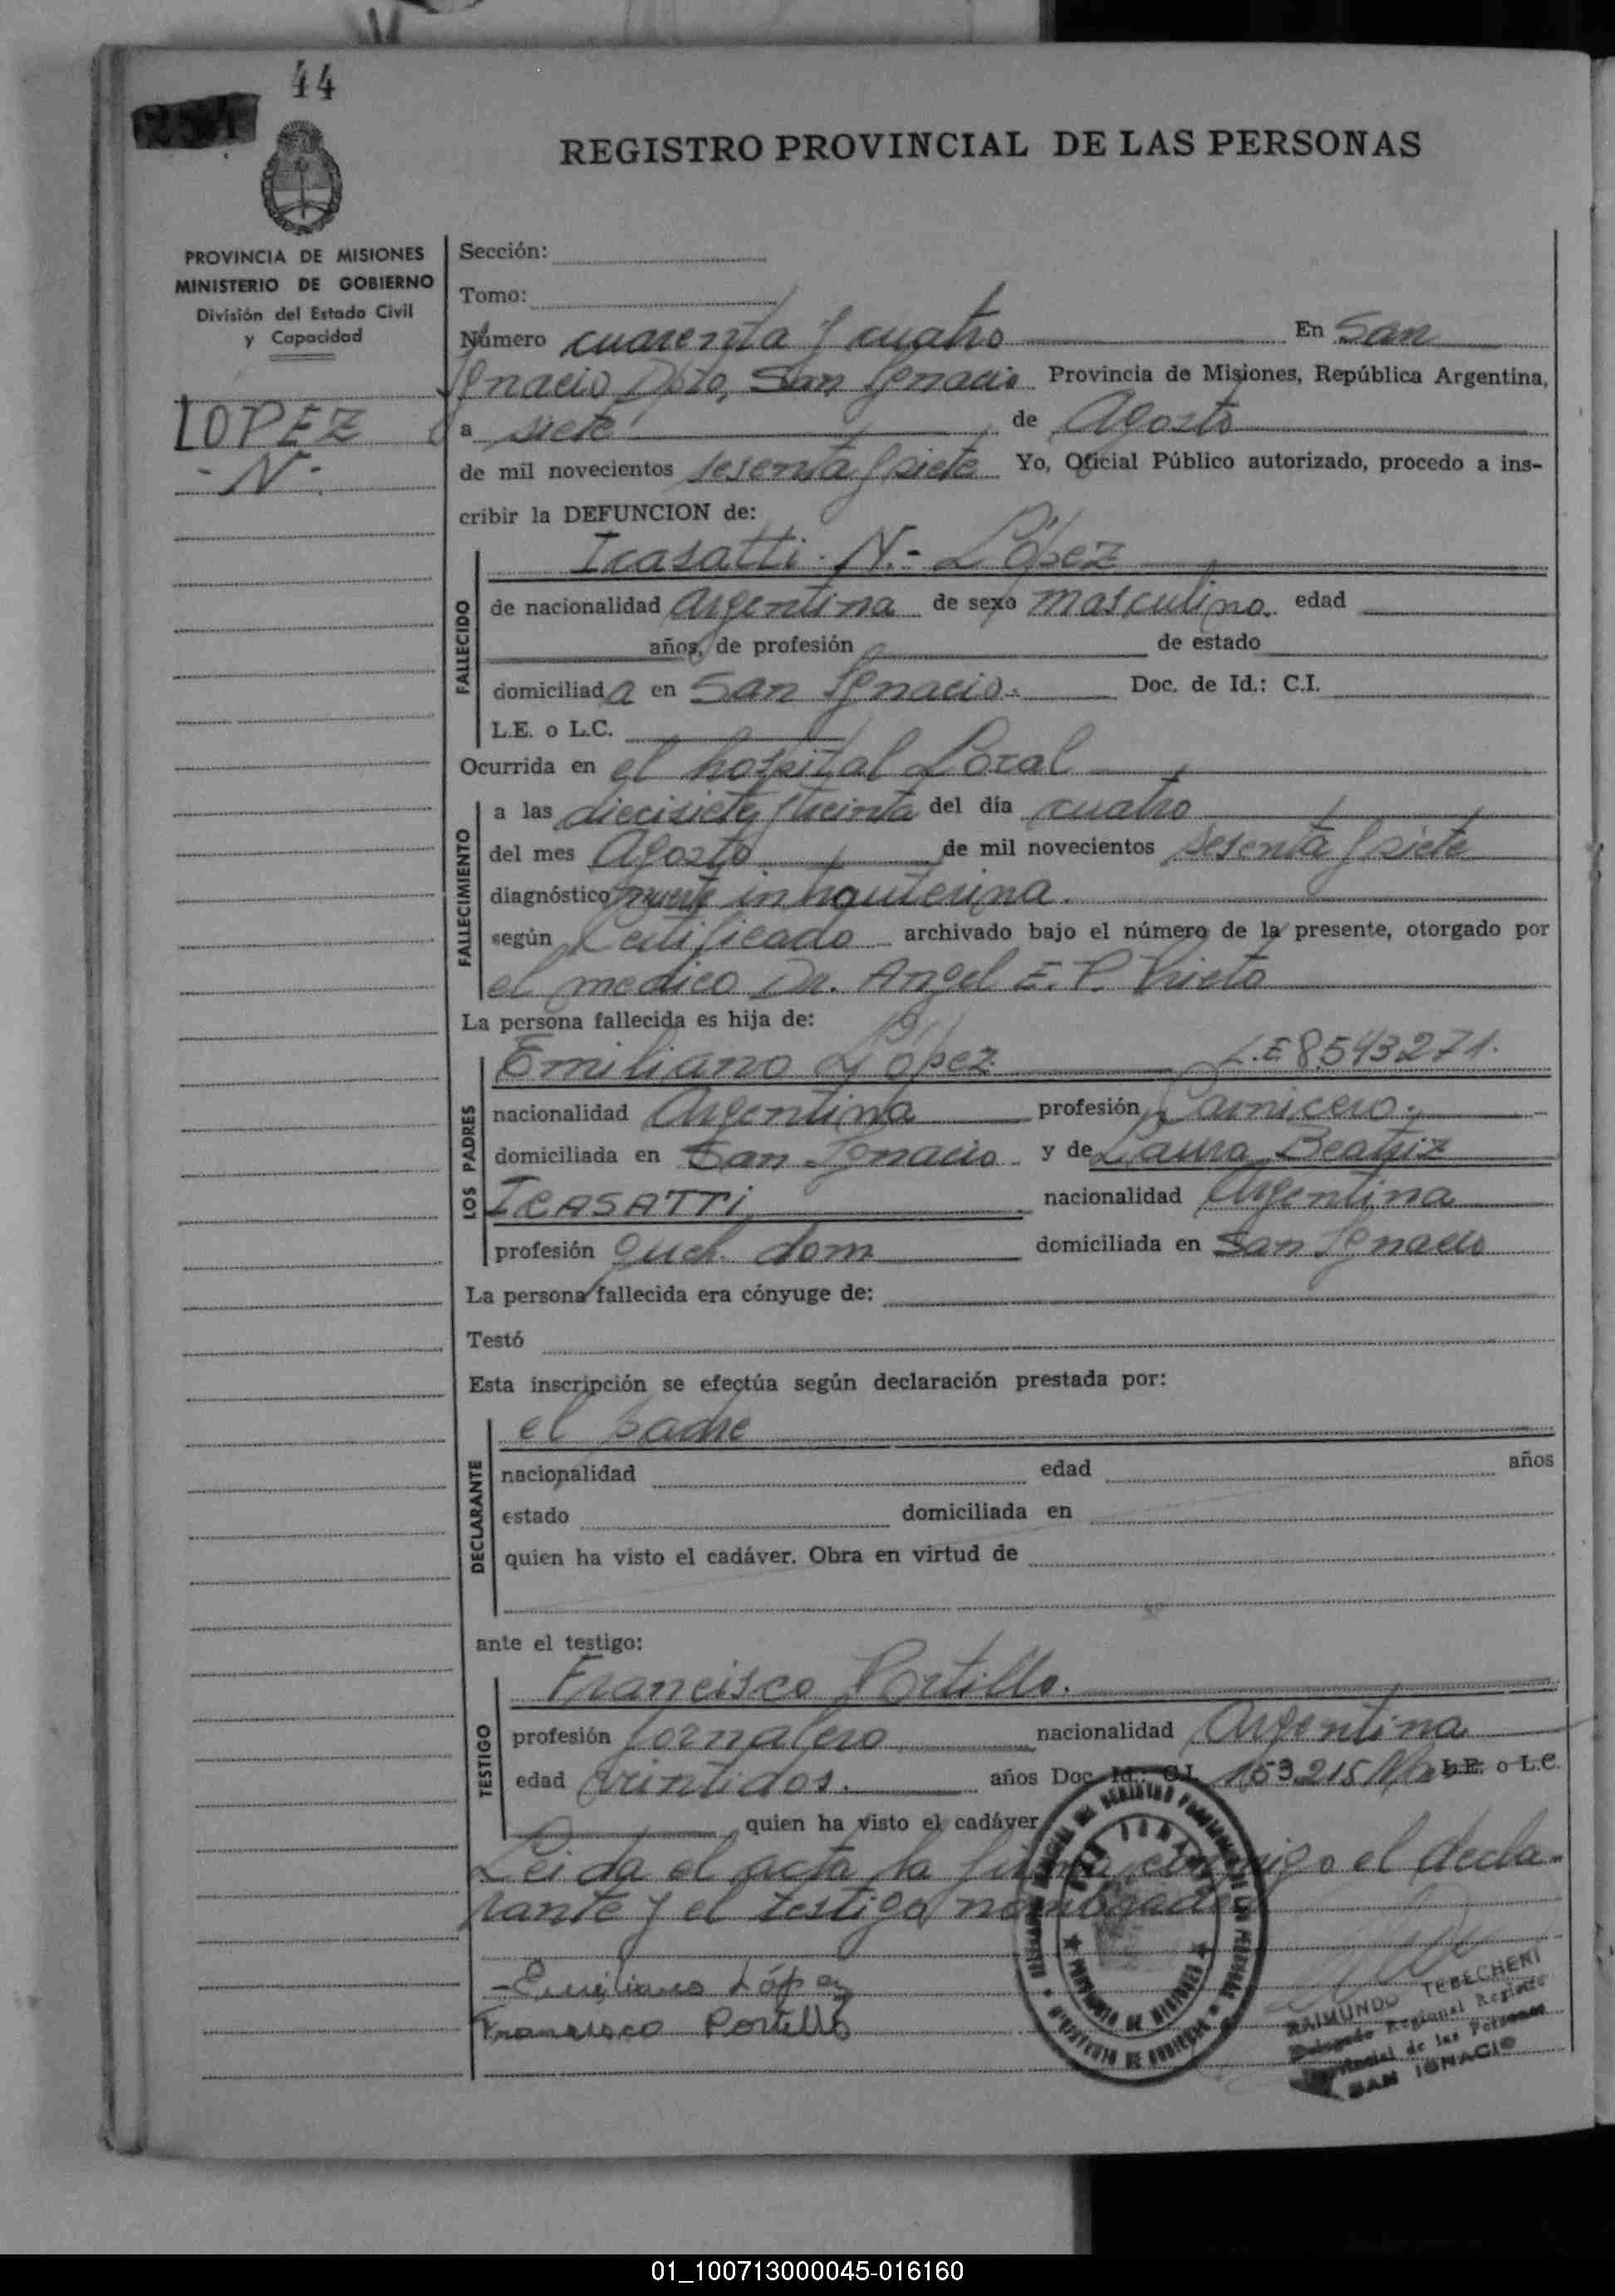 44
REGISTRO PROVINCIAL DE LAS PERSONAS
PROVINCIA DE MISIONES
MINISTERIO DE GOBIERNO
División del Estado Civil
y Capacidad
LOPEZ
- N -
Sección:
Tomo:
Número cuarenta y cuatro En San
Ignacio Dpto. San Ignacio Provincia de Misiones, República Argentina,
a siete de Agosto
de mil novecientos sesenta y siete Yo, Oficial Público autorizado, procedo a ins-
cribir la DEFUNCION de:
Icasatti N.- López
FALLECIDO
de nacionalidad argentina de sexo masculino. edad
años, de profesión de estado
domiciliada en San Ignacio. Doc. de Id.: C.I.
L.E. o L.C.
Ocurrida en el hospital Local
FALLECIMIENTO
a las diecisiete y treinta del día cuatro
del mes Agosto de mil novecientos sesenta y siete
diagnóstico muerte intrauterina.
según Certificado archivado bajo el número de la presente, otorgado por
el medico Dr. Angel E. P. Prieto
La persona fallecida es hija de:
LOS PADRES
Emiliano López L.E 8.543.271.
nacionalidad Argentina profesión Carnicero.
domiciliada en San Ignacio y de Laura Beatriz
ICASATTI nacionalidad Argentina
profesión queh. dom domiciliada en San Ignacio
La persona fallecida era cónyuge de:
Testó
Esta inscripción se efectúa según declaración prestada por:
DECLARANTE
el padre
nacionalidad edad años
estado domiciliada en
quien ha visto el cadáver. Obra en virtud de
ante el testigo:
TESTIGO
Francisco Portillo.
profesión Jornalero nacionalidad Argentina
edad veintidos. años Doc. Id.: C.I. 153.215 L.E. o L.C.
quien ha visto el cadáver
Leida el acta la firma conmigo el decla-
rante y el testigo nombrado
- Emiliano López
Francisco Portillo
PROVINCIA DE MISIONES
MINISTERIO DE GOBIERNO
RAIMUNDO TEBECHERI
Delegado Regional Registro
Provincial de las Personas
SAN IGNACIO
01_100713000045-016160